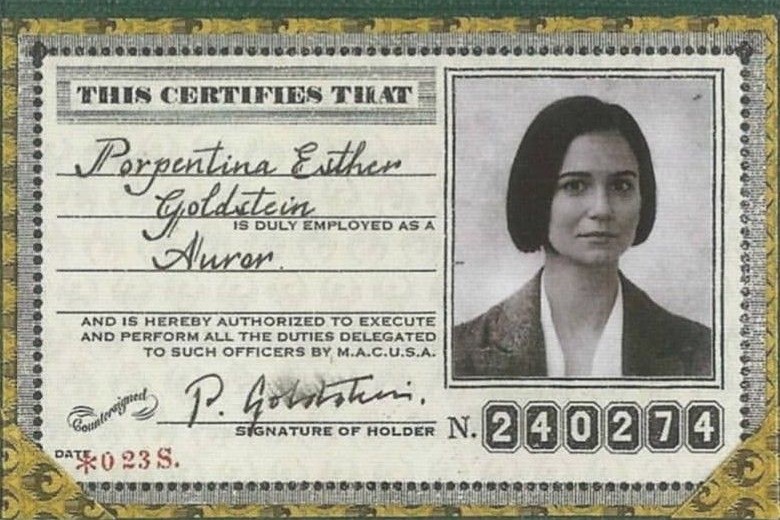 THIS CERTIFIES THAT
Porpentina Esther
Goldstein
IS DULY EMPLOYED AS A
Auror.
AND IS HEREBY AUTHORIZED TO EXECUTE
AND PERFORM ALL THE DUTIES DELEGATED
TO SUCH OFFICERS BY M.A.C.U.S.A.
Countersigned
P. Goldstein.
SIGNATURE OF HOLDER
N. 240274
DATE
*0 23 S.